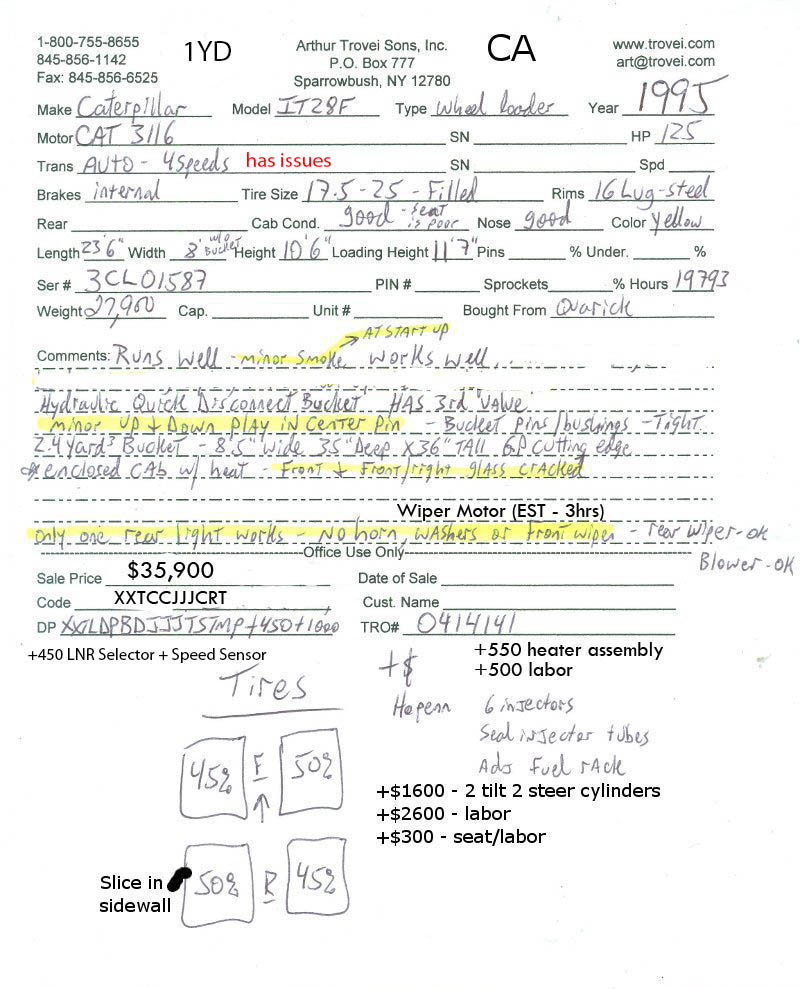 1-800-755-8655
845-856-1142
Fax: 845-856-6525
1YD
Arthur Trovei Sons, Inc.
P.O. Box 777
Sparrowbush, NY 12780
CA
www.trovei.com
art@trovei.com
Make Caterpillar Model IT28F Type Wheel loader Year 1995
Motor CAT 3116 SN HP 125
Trans AUTO - 4 Speeds has issues SN Spd
Brakes internal Tire Size 17.5-25 - Filled Rims 16 Lug-steel
Rear Cab Cond. good - seat is poor Nose good Color Yellow
Length 23'6" Width 8' w/o Bucket Height 10'6" Loading Height 11'7" Pins % Under. %
Ser # 3CL01587 PIN # Sprockets % Hours 19793
Weight 27,900 Cap. Unit # Bought From Quarick
AT START UP
Comments: Runs well - minor smoke, works well..
Hydraulic Quick Disconnect Bucket HAS 3rd Valve
minor up + Down play in center pin - Bucket pins/bushings - Tight
2.4 yard³ Bucket - 8.5" wide 35" Deep X 36" TALL 6P cutting edge
* enclosed CAb w/ heat - Front + Front/right glass cracked
Wiper Motor (EST - 3hrs)
only one rear light works - No horn, washers or front wiper - rear wiper-ok
Blower-ok
Office Use Only
Sale Price $35,900 Date of Sale
Code XXTCCJJJCRT Cust. Name
DP XXJLDPBDJJJTSTMP+450+1000 TRO# 0414141
+450 LNR Selector + Speed Sensor
+$
+550 heater assembly
+500 labor
Tires
6 injectors
Seal injector tubes
Adj Fuel rack
45% F 50%
+$1600 - 2 tilt 2 steer cylinders
+$2600 - labor
+$300 - seat/labor
Slice in
sidewall
50% R 45%